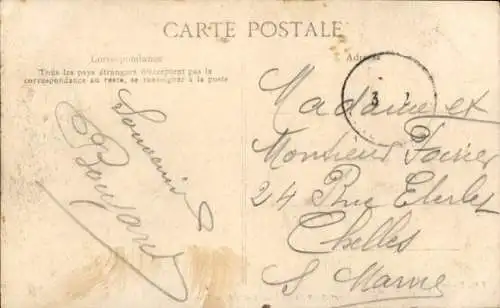 CARTE POSTALE
Correspondance
Tous les pays étrangers n'acceptent pas la
correspondance au recto, se renseigner à la poste
Souvenir
Adresse
3
Madame et
Monsieur Poirier
24 Rue
Chelles
S Marne